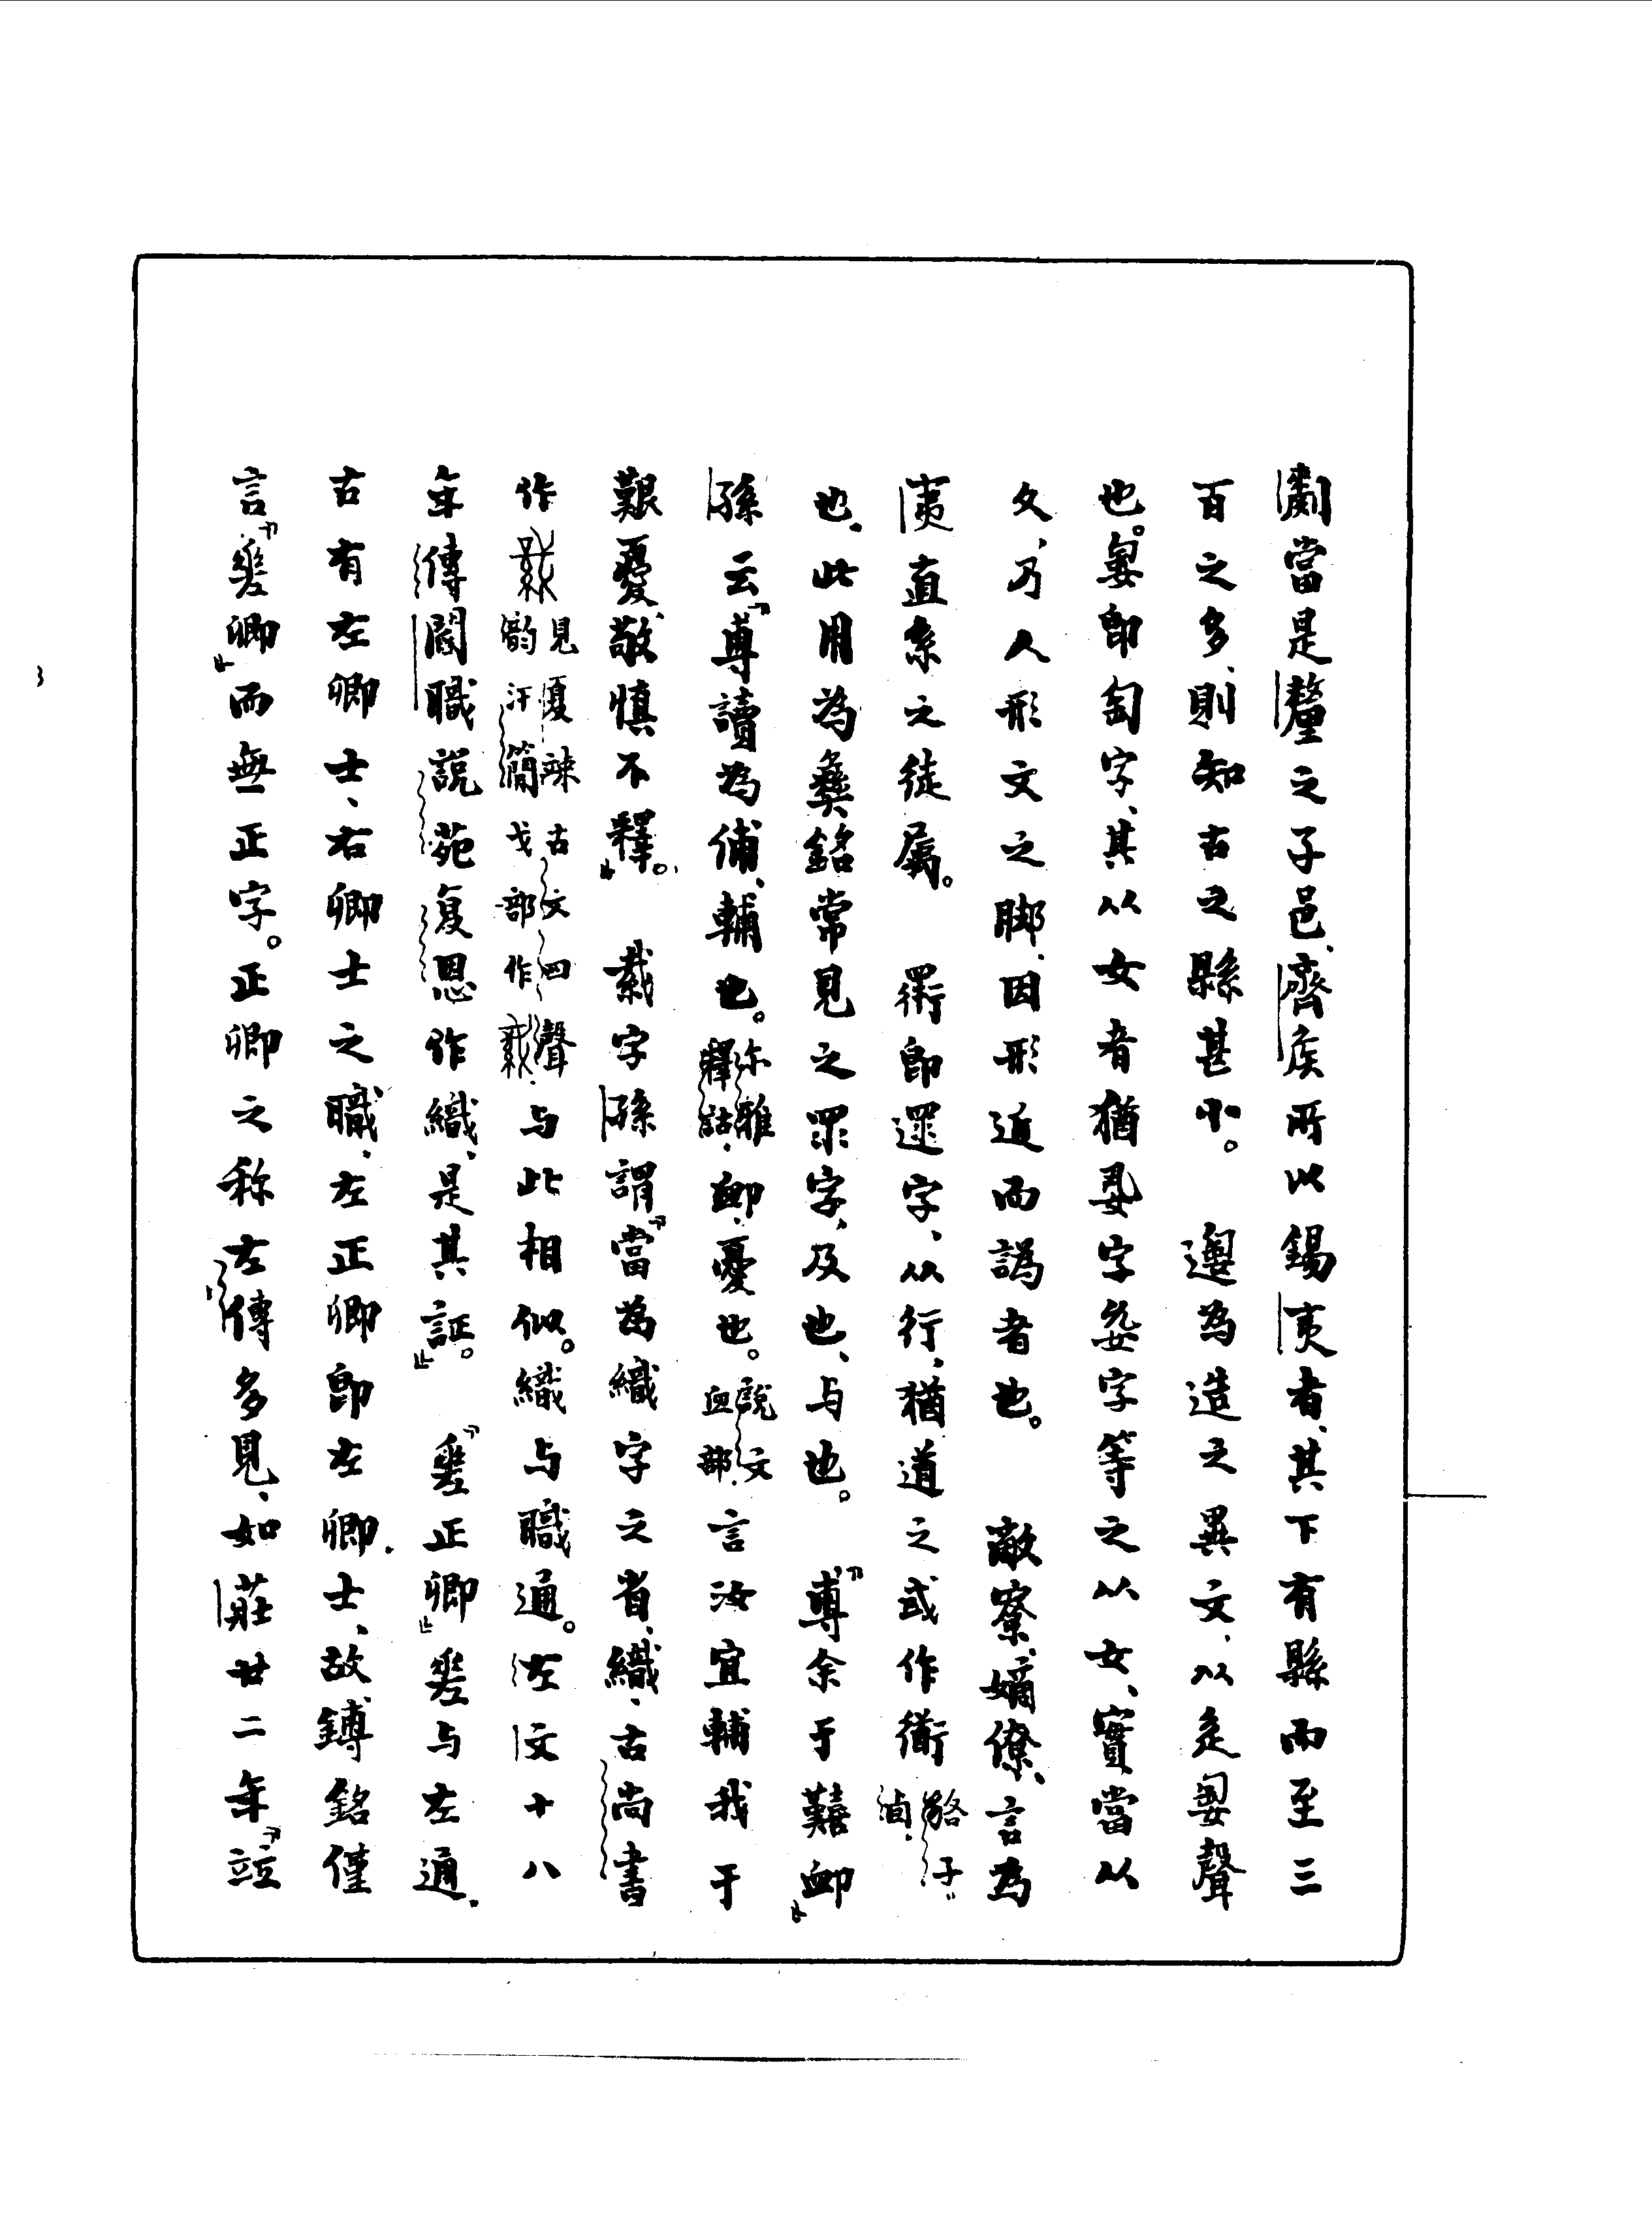 劃當是釐之子邑、齊侯所以錫𡰥者、其下有縣而至三
百之多、則知古之縣甚小。　為造之異文、从辵聲
也。即匋字、其从女者猶字字等之从女、實當从
夊、乃人形文之脚、因形近而譌者也。　敵寮、嫡僚、言為
夷直系之徒屬。　衟即還字、从行、猶道之或作衜鶡子
也、此用為彝銘常見之眔字、及也、与也。　『尃余于囏卹』
孫云『尃讀為俌、輔也。尔雅釋詁、卹、憂也。說文血部、言汝宜輔我于
艱憂、敬慎不釋。』　字孫謂『當為織字之省、織、古尚書
作見夏竦古文四聲韵汗簡戈部作、与此相似。織与職通。左文十八
年傳閻職說苑复恩作織、是其証。』　『𢀩正卿』𢀩与左通、
古有左卿士、右卿士之職、左正卿即左卿士、故鎛銘僅
言『𢀩卿』而無正字。正卿之称左傳多見、如莊廿二年『竝